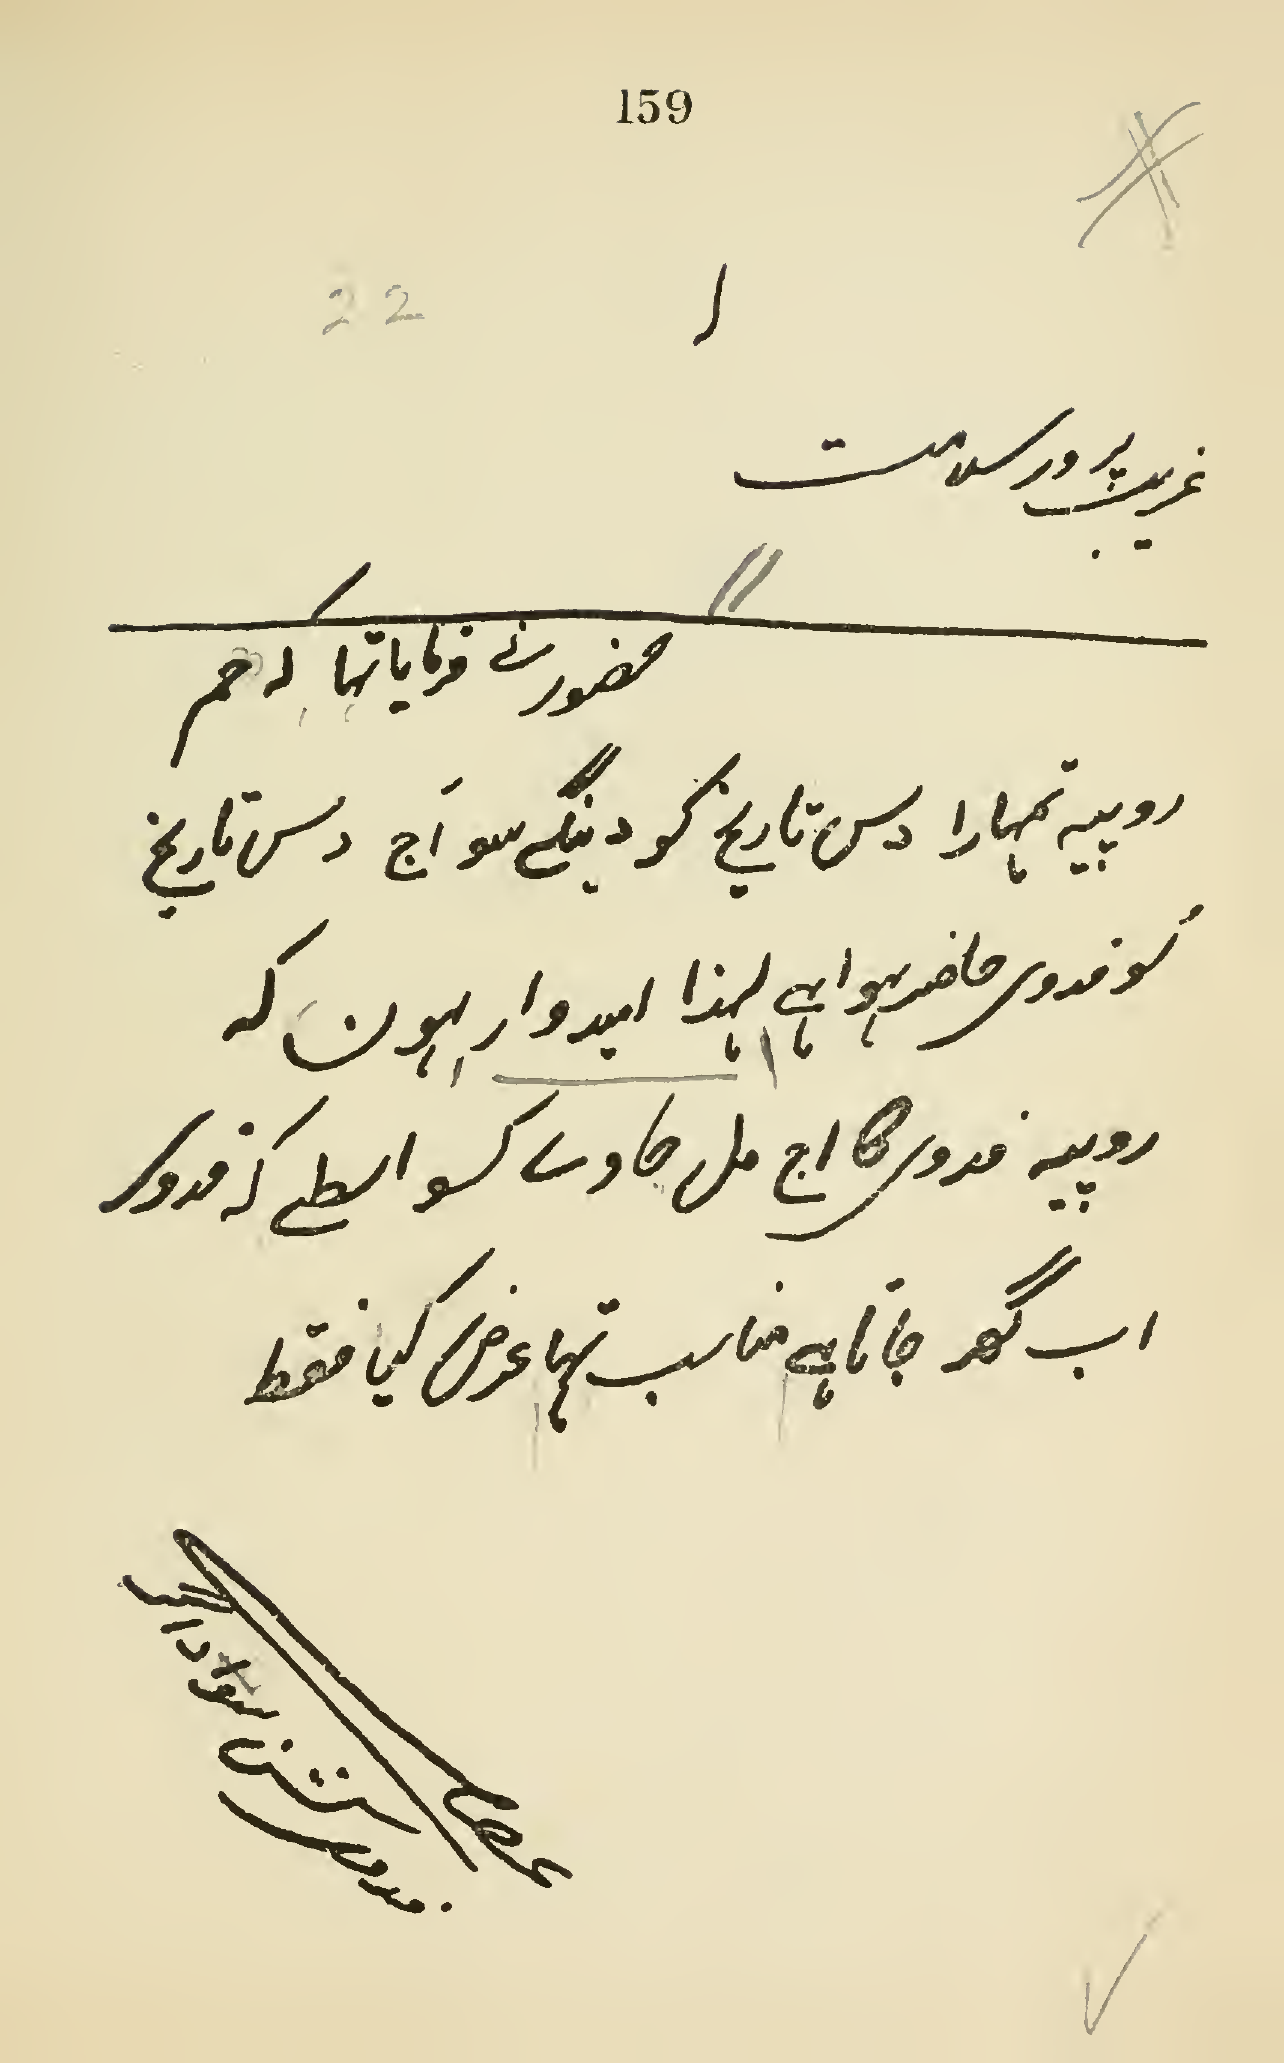 159
22
۱
غریب پرور سلامت
حضور نے فرمایا تہا کہ حم
روپیہ تمہارا دس تاریخ کو دینگے سو آج دس تاریخ
کو فدوی حاضر ہوا ہے لہذا امیدوار ہون کہ
روپیہ فدوی کا اج مل جاوے کسواسطے کہ فدوی
اب گھر جاتا ہے مناسب تہا عرض کیا فقط
عرضی
فدوی
سوداگر